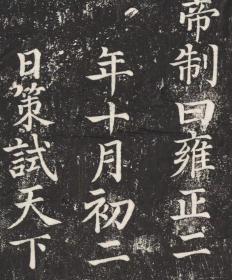 帝制曰雍正二
年十月初二
日策試天下